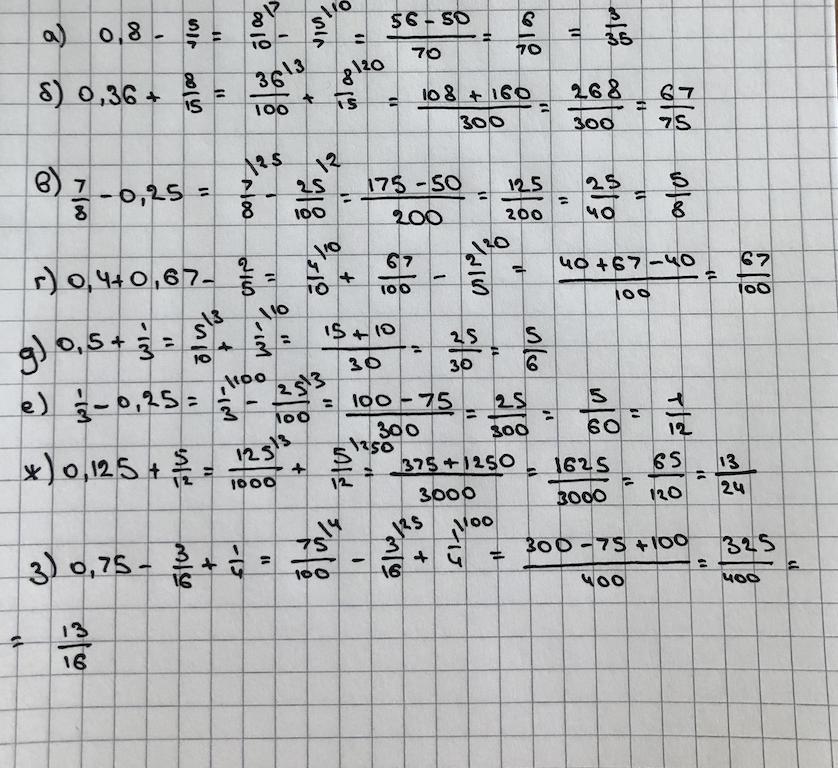 а) 0,8 - 5/7 = 8\7/10 - 5\10/7 = 56-50/70 = 6/70 = 3/35
б) 0,36 + 8/15 = 36\3/100 + 8\20/15 = 108+160/300 = 268/300 = 67/75
в) 7/8 - 0,25 = 7\25/8 - 25\2/100 = 175-50/200 = 125/200 = 25/40 = 5/8
г) 0,4+0,67- 2/5 = 4\10/10 + 67/100 - 2\20/5 = 40+67-40/100 = 67/100
д) 0,5 + 1/3 = 5\3/10 + 1\10/3 = 15+10/30 = 25/30 = 5/6
е) 1/3 - 0,25 = 1\100/3 - 25\3/100 = 100-75/300 = 25/300 = 5/60 = 1/12
ж) 0,125 + 5/12 = 125\3/1000 + 5\250/12 = 375+1250/3000 = 1625/3000 = 65/120 = 13/24
з) 0,75 - 3/16 + 1/4 = 75\4/100 - 3\25/16 + 1\100/4 = 300-75+100/400 = 325/400 =
= 13/16